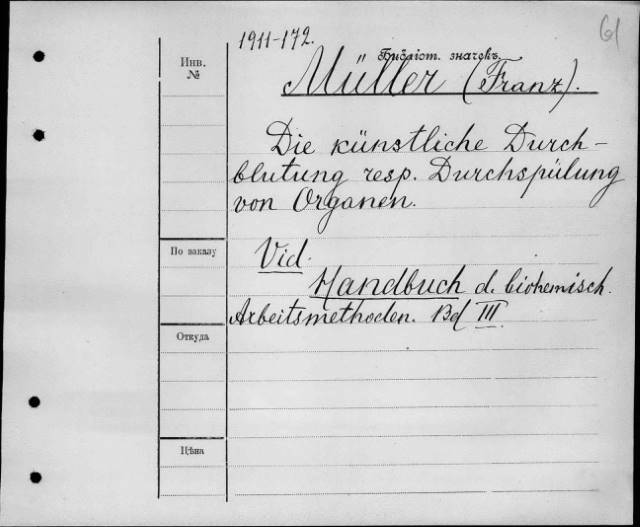 61
1911-172.
Инв.
№
Библіот. значекъ.
Müller (Franz).
Die künstliche Durch-
blutung resp. Durchspülung
von Organen.
По заказу
Vid.
Handbuch d. biohemisch.
Arbeitsmethoden. Bd III
Откуда
Цѣна